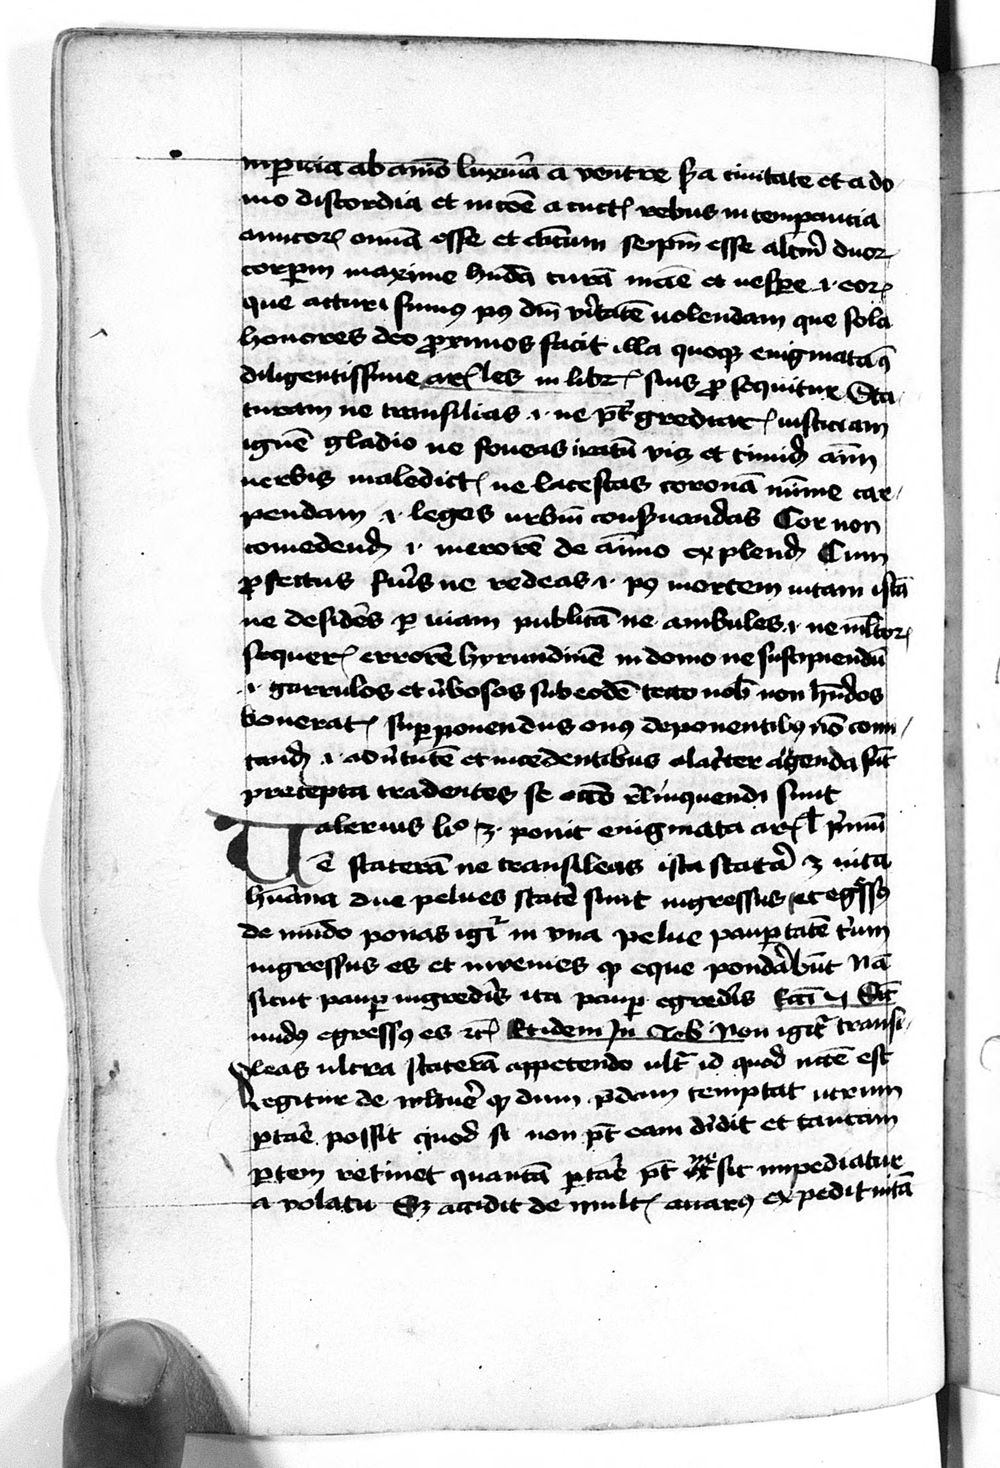 inpericia ab animo luxuria a ventre s̄a civitate et a do
mo discordia et in coē a cunctis rebus intemperancia
amicorum omnia esse et amicum seipm̄ esse alterum duorum
corporum maxime hn̄dā curā mane et vespere .i. eorum
que acturi sumus p9 dm̄ veritatē colendam que sola
homines deo proximos facit illa quoque enigmata que
diligentissime aristoteles in libris suis prosequitur Sta
teram ne transilias .i. ne pretergrediaris iusticiam
ignē gladio ne foveas iratū vi3 et timidum aīm
verbis maledictis ne lacescas coronā minime car
pendam .i. leges urbium conservandas Cor non
comedendum .i. merorē de animo expellendum Cum
profectus fueris ne redeas .i. p9 mortem vitam istā
ne desideres per viam publicā ne ambules .i. ne multorum
sequeris errorē hyrundinē in domo ne suscipiendū
.i. garrulos et verbosos sub eodē tecto nob̄ non hn̄dos
honeratis superponendus onus deponentibus nō com
andum .i. ad virtutē et incedentibus alacriter agenda sūt
precepta tradentes se ocio relinquendi sunt
Valerius lio 3 ponit enigmata aristotelis primum
ē staterā ne transileas ista statera 3 vita
humana due pelves statere sunt ingressus et egressus
de mundo ponas igitur in una pelve paupertatē cum
ingressus es et invenies quod eque ponderabunt Nā
sicut pauper ingrederis ita pauper egrederis Sicut
nudus egressus es etc Et idem in Iob Non igitur transi
leas ultra staterā appetendo ultra id quod necesse est
Legitur de vulture quod dum predam temptat utrum
portare possit quod si non potest eam dividit et tantam
partem retinet quantā portare potest ne sic impediatur
a volatu Sic accidit de multis avarus expedit vitā